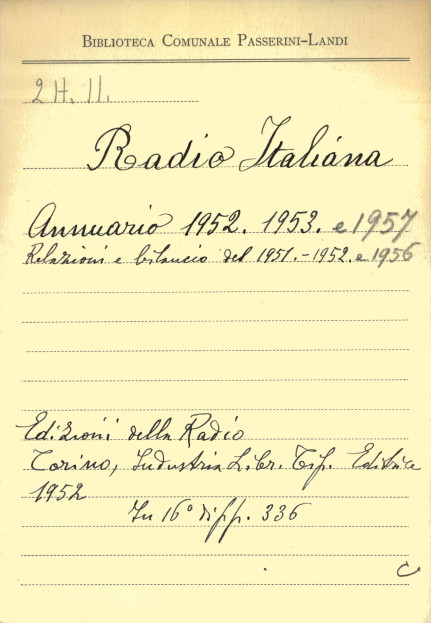 BIBLIOTECA COMUNALE PASSERINI-LANDI
2 H. 11.
Radio Italiána
Annuario 1952. 1953. e 1957
Relazioni e bilancio del 1951. - 1952. e 1956
Edizioni della Radio
Torino, Industria Libr. Tip. Editrice
1952
In 16° di pp. 336
C